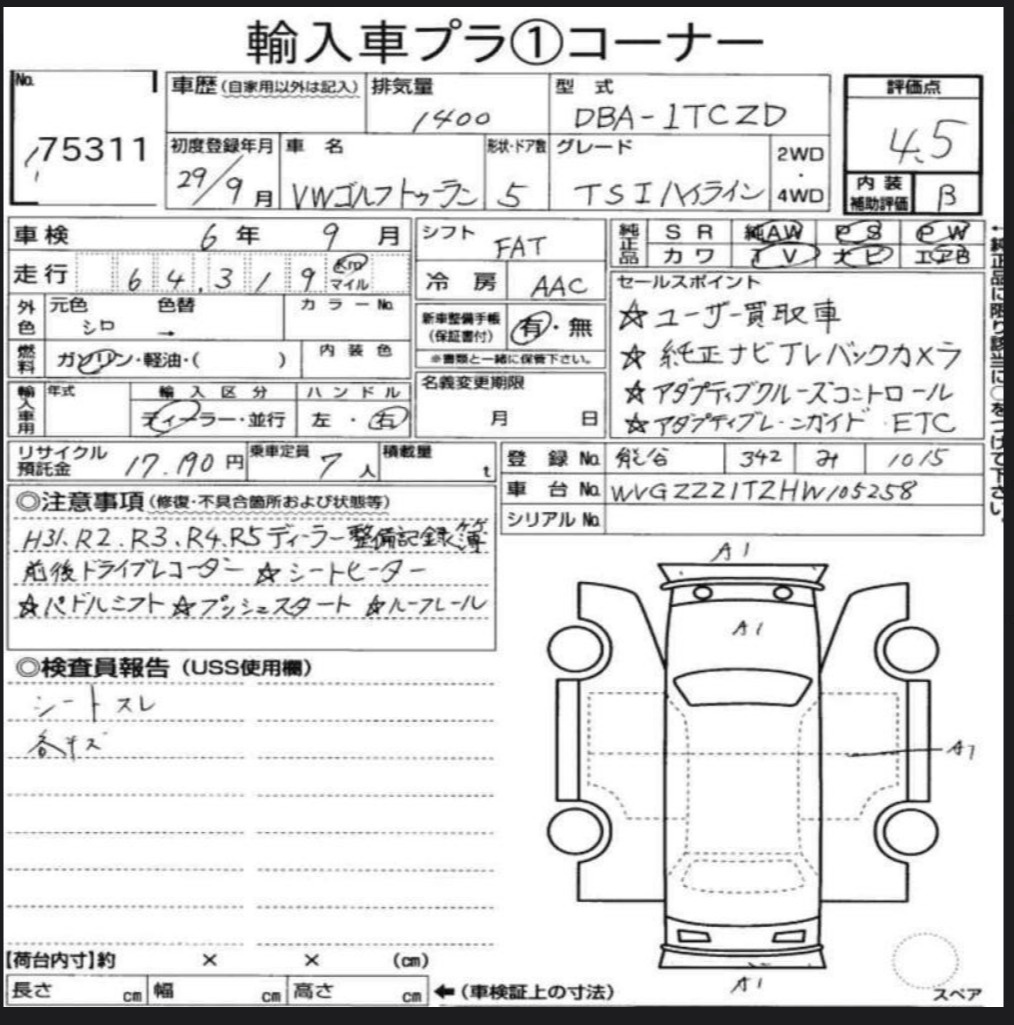 輸入車プラ①コーナー
No. 75311
車歴(自家用以外は記入)
排気量 1400
型式 DBA-1TCZD
評価点 4.5
初度登録年月 29/9月
車名 VWゴルフトゥーラン
形状・ドア数 5
グレード TSIハイライン
2WD・4WD
内装補助評価 B
車検 6年 9月
シフト FAT
純正品 SR 純AW PS PW
カワ TV ナビ エアB
走行 64,319 Km マイル
冷房 AAC
セールスポイント
☆ユーザー買取車
☆純正ナビTVバックカメラ
☆アダプティブクルーズコントロール
☆アダプティブレーンガイド ETC
外色 元色 シロ → 色替 カラーNo.
新車整備手帳(保証書付) 有・無
※書類と一緒に保管下さい。
燃料 ガソリン・軽油・( ) 内装色
名義変更期限 月 日
輸入車用 年式 輸入区分 ディーラー・並行 ハンドル 左・右
←純正品に限り該当に○をつけて下さい。
リサイクル預託金 17,190円
乗車定員 7人
積載量 t
登録No. 熊谷 342 み 1015
車台No. WVGZZZ1TZHW105258
シリアルNo.
◎注意事項(修復・不具合箇所および状態等)
H31.R2.R3.R4.R5ディーラー整備記録簿
前後ドライブレコーダー ☆シートヒーター
☆パドルシフト ☆プッシュスタート ☆ルーフレール
◎検査員報告(USS使用欄)
シートスレ
各キズ
A1
A1
A1
A1
【荷台内寸】約 × × (cm)
長さ cm 幅 cm 高さ cm ←(車検証上の寸法)
スペア